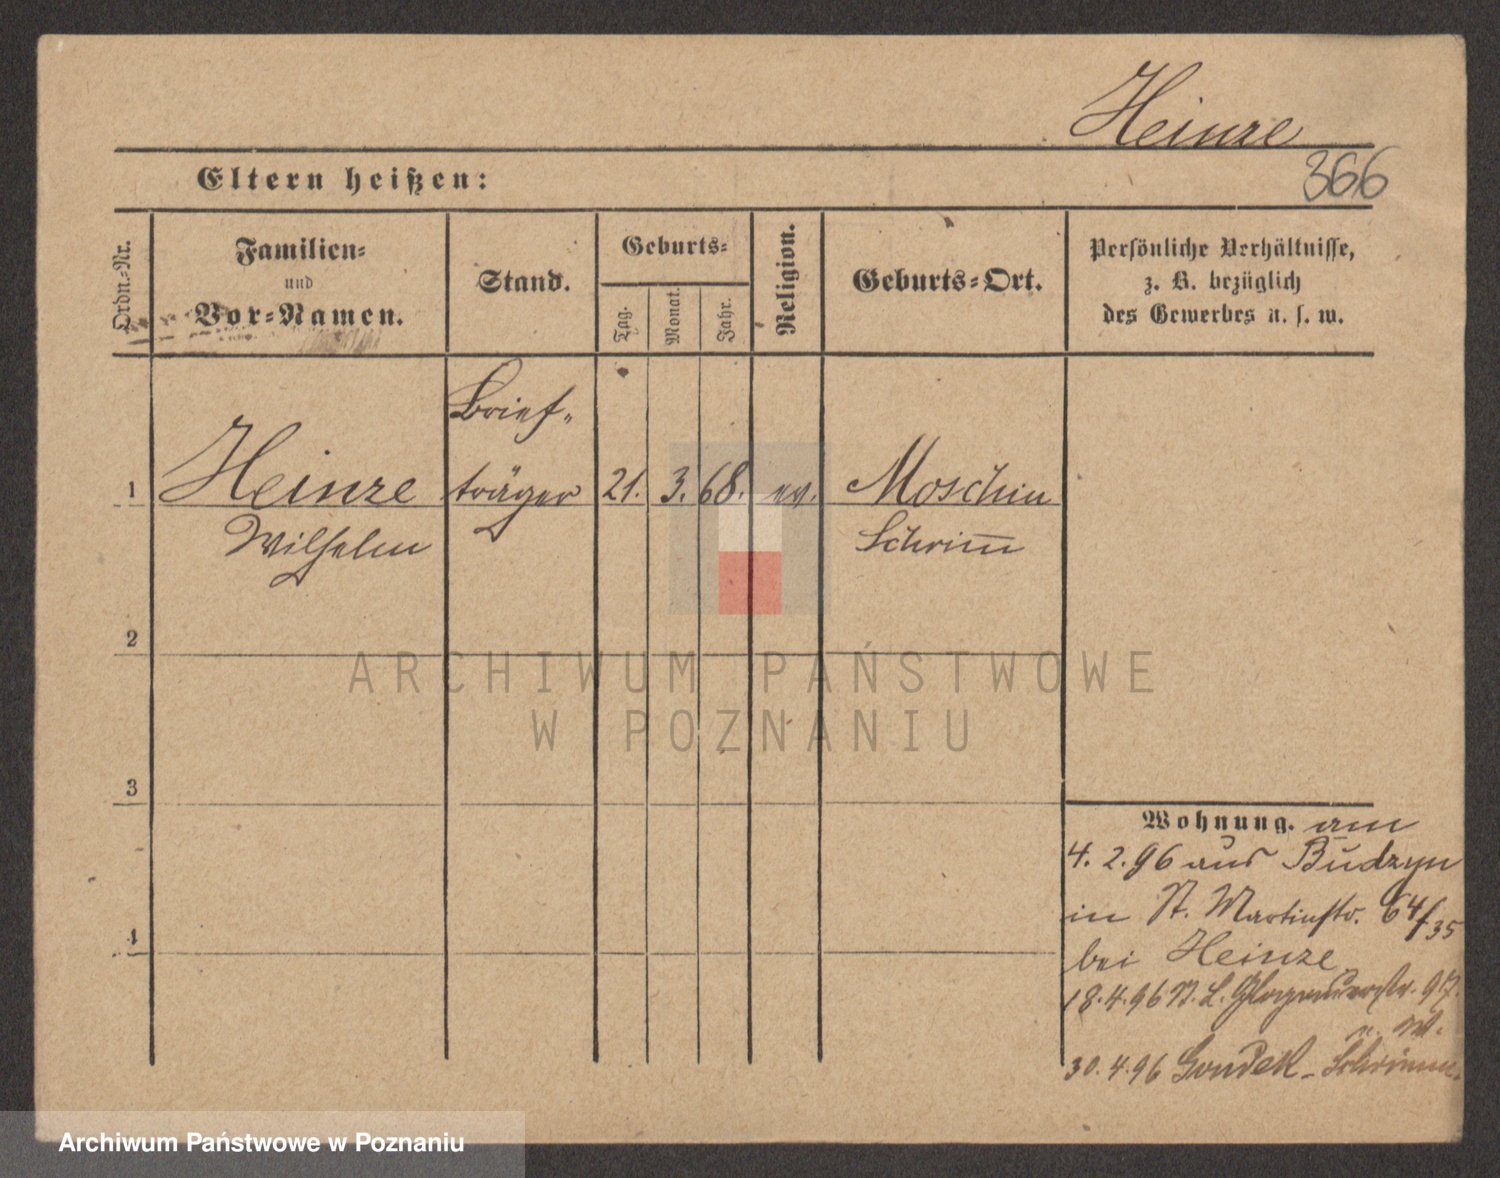 Heinze
366
Eltern heißen:
Ordn.-Nr.
Familien-
und
Vor-Namen.
Stand.
Geburts-
Tag.
Monat.
Jahr.
Religion.
Geburts-Ort.
Persönliche Verhältnisse,
z. B. bezüglich
des Gewerbes u. s. w.
1
Heinze
Wilhelm
Brief-
träger
21.
3.
68.
ev.
Moschin
Schrim̅
2
3
4
Wohnung. am
4. 2. 96 aus Budzyn
in St. Martinstr. 64/35
bei Heinze
18. 4. 96 St. L. Glogauerstr. 97.
30. 4. 96 Schrimm
ARCHIWUM PAŃSTWOWE
W POZNANIU
Archiwum Państwowe w Poznaniu